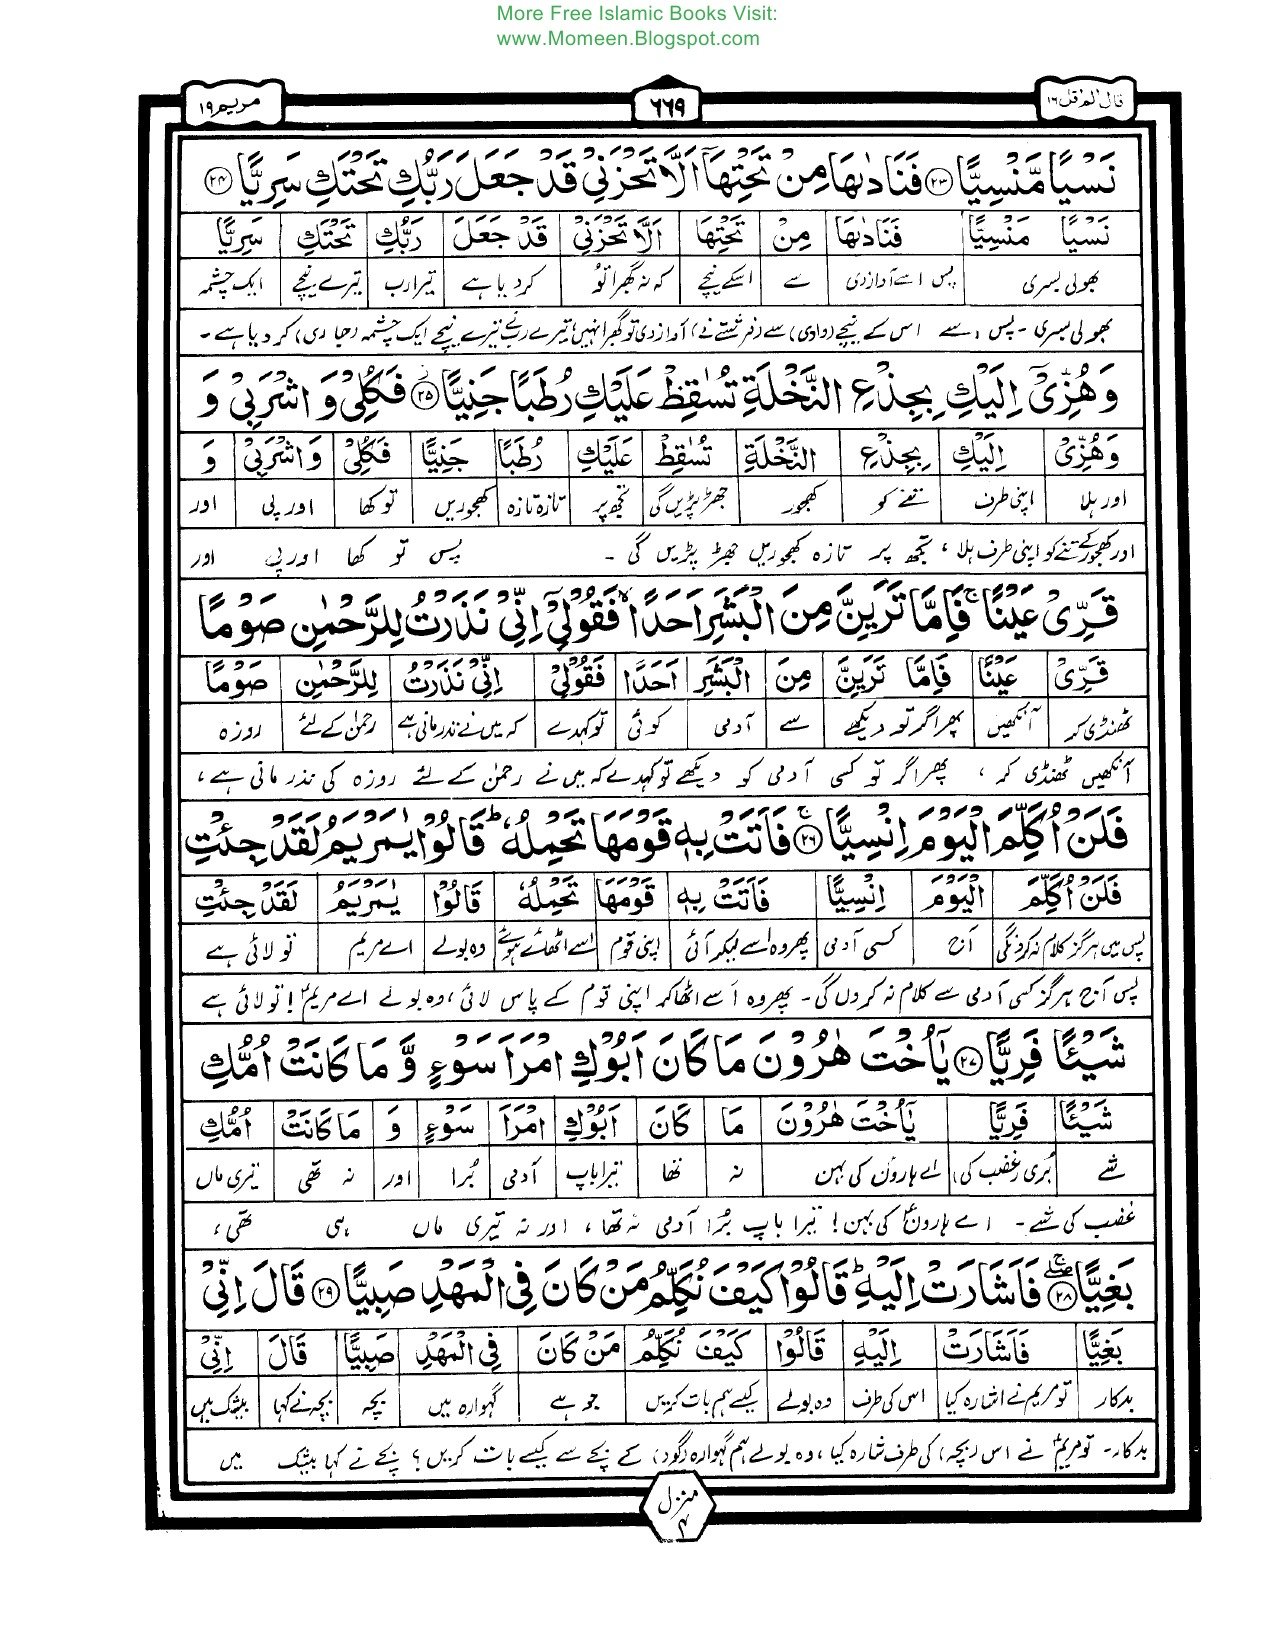 More Free Islamic Books Visit:
www.Momeen.Blogspot.com
قال الم اقل ۱۶
۶۶۹
مریم ۱۹
نَسْيًا مَّنْسِيًّا ۲۳ فَنَادٰىهَا مِنْ تَحْتِهَاۤ اَلَّا تَحْزَنِيْ قَدْ جَعَلَ رَبُّكِ تَحْتَكِ سَرِيًّا ۲۴
نَسْيًا مَنْسِيًّا فَنَادٰىهَا مِنْ تَحْتِهَا اَلَّا تَحْزَنِيْ قَدْ جَعَلَ رَبُّكِ تَحْتَكِ سَرِيًّا
بھولی بسری پس اسے آواز دی سے اسکے نیچے کہ نہ گھبرا تو کر دیا ہے تیرا رب تیرے نیچے ایک چشمہ
بھولی بسری ۔ پس اسے اس کے نیچے (وادی) سے (فرشتے نے) آواز دی تو گھبرا نہیں، تیرے رب نے تیرے نیچے ایک چشمہ (جاری) کر دیا ہے ۔
وَهُزِّيْۤ اِلَيْكِ بِجِذْعِ النَّخْلَةِ تُسٰقِطْ عَلَيْكِ رُطَبًا جَنِيًّا ۲۵ فَكُلِيْ وَاشْرَبِيْ وَ
وَهُزِّيْ اِلَيْكِ بِجِذْعِ النَّخْلَةِ تُسٰقِطْ عَلَيْكِ رُطَبًا جَنِيًّا فَكُلِيْ وَاشْرَبِيْ وَ
اور ہلا اپنی طرف تنے کو کھجور جھڑ پڑیں گی تجھ پر تازہ تازہ کھجوریں تو کھا اور پی اور
اور کھجور کے تنے کو اپنی طرف ہلا ، تجھ پر تازہ کھجوریں جھڑ پڑیں گی ۔ پس تو کھا اور پی اور
قَرِّيْ عَيْنًا ۚ فَاِمَّا تَرَيِنَّ مِنَ الْبَشَرِ اَحَدًا ۙ فَقُوْلِيْۤ اِنِّيْ نَذَرْتُ لِلرَّحْمٰنِ صَوْمًا
قَرِّيْ عَيْنًا فَاِمَّا تَرَيِنَّ مِنَ الْبَشَرِ اَحَدًا فَقُوْلِيْ اِنِّيْ نَذَرْتُ لِلرَّحْمٰنِ صَوْمًا
ٹھنڈی کر آنکھیں پھر اگر تو دیکھے سے آدمی کوئی تو کہدے کہ میں نے نذر مانی ہے رحمٰن کے لئے روزہ
آنکھیں ٹھنڈی کر ، پھر اگر تو کسی آدمی کو دیکھے تو کہدے کہ میں نے رحمٰن کے لئے روزہ کی نذر مانی ہے ،
فَلَنْ اُكَلِّمَ الْيَوْمَ اِنْسِيًّا ۲۶ ۚ فَاَتَتْ بِهٖ قَوْمَهَا تَحْمِلُهٗ ؕ قَالُوْا يٰمَرْيَمُ لَقَدْ جِئْتِ
فَلَنْ اُكَلِّمَ الْيَوْمَ اِنْسِيًّا فَاَتَتْ بِهٖ قَوْمَهَا تَحْمِلُهٗ قَالُوْا يٰمَرْيَمُ لَقَدْ جِئْتِ
پس میں ہرگز کلام نہ کروں گی آج کسی آدمی پھر وہ اسے لیکر آئی اپنی قوم اسے اٹھائے ہوئے وہ بولے اے مریم تو لائی ہے
پس آج ہرگز کسی آدمی سے کلام نہ کروں گی ۔ پھر وہ اسے اٹھا کر اپنی قوم کے پاس لائی ، وہ بولے اے مریمؑ ! تو لائی ہے
شَيْئًا فَرِيًّا ۲۷ يٰۤاُخْتَ هٰرُوْنَ مَا كَانَ اَبُوْكِ امْرَاَ سَوْءٍ وَّ مَا كَانَتْ اُمُّكِ
شَيْئًا فَرِيًّا يٰۤاُخْتَ هٰرُوْنَ مَا كَانَ اَبُوْكِ امْرَاَ سَوْءٍ وَ مَا كَانَتْ اُمُّكِ
شے بُری (غضب کی) اے ہارون کی بہن نہ تھا تیرا باپ آدمی بُرا اور نہ تھی تیری ماں
غضب کی شے ۔ اے ہارونؑ کی بہن ! تیرا باپ بُرا آدمی نہ تھا ، اور نہ تیری ماں ہی تھی ،
بَغِيًّا ۲۸ ۖۚ فَاَشَارَتْ اِلَيْهِ ؕ قَالُوْا كَيْفَ نُكَلِّمُ مَنْ كَانَ فِي الْمَهْدِ صَبِيًّا ۲۹ قَالَ اِنِّيْ
بَغِيًّا فَاَشَارَتْ اِلَيْهِ قَالُوْا كَيْفَ نُكَلِّمُ مَنْ كَانَ فِي الْمَهْدِ صَبِيًّا قَالَ اِنِّيْ
بدکار تو مریم نے اشارہ کیا اس کی طرف وہ بولے کیسے ہم بات کریں جو ہے گہوارہ میں بچہ بچہ نے کہا بیشک میں
بدکار ۔ تو مریمؑ نے اس (بچہ) کی طرف اشارہ کیا ، وہ بولے ہم گہوارہ (گود) کے بچے سے کیسے بات کریں ؟ بچے نے کہا بیشک میں
منزل
۴